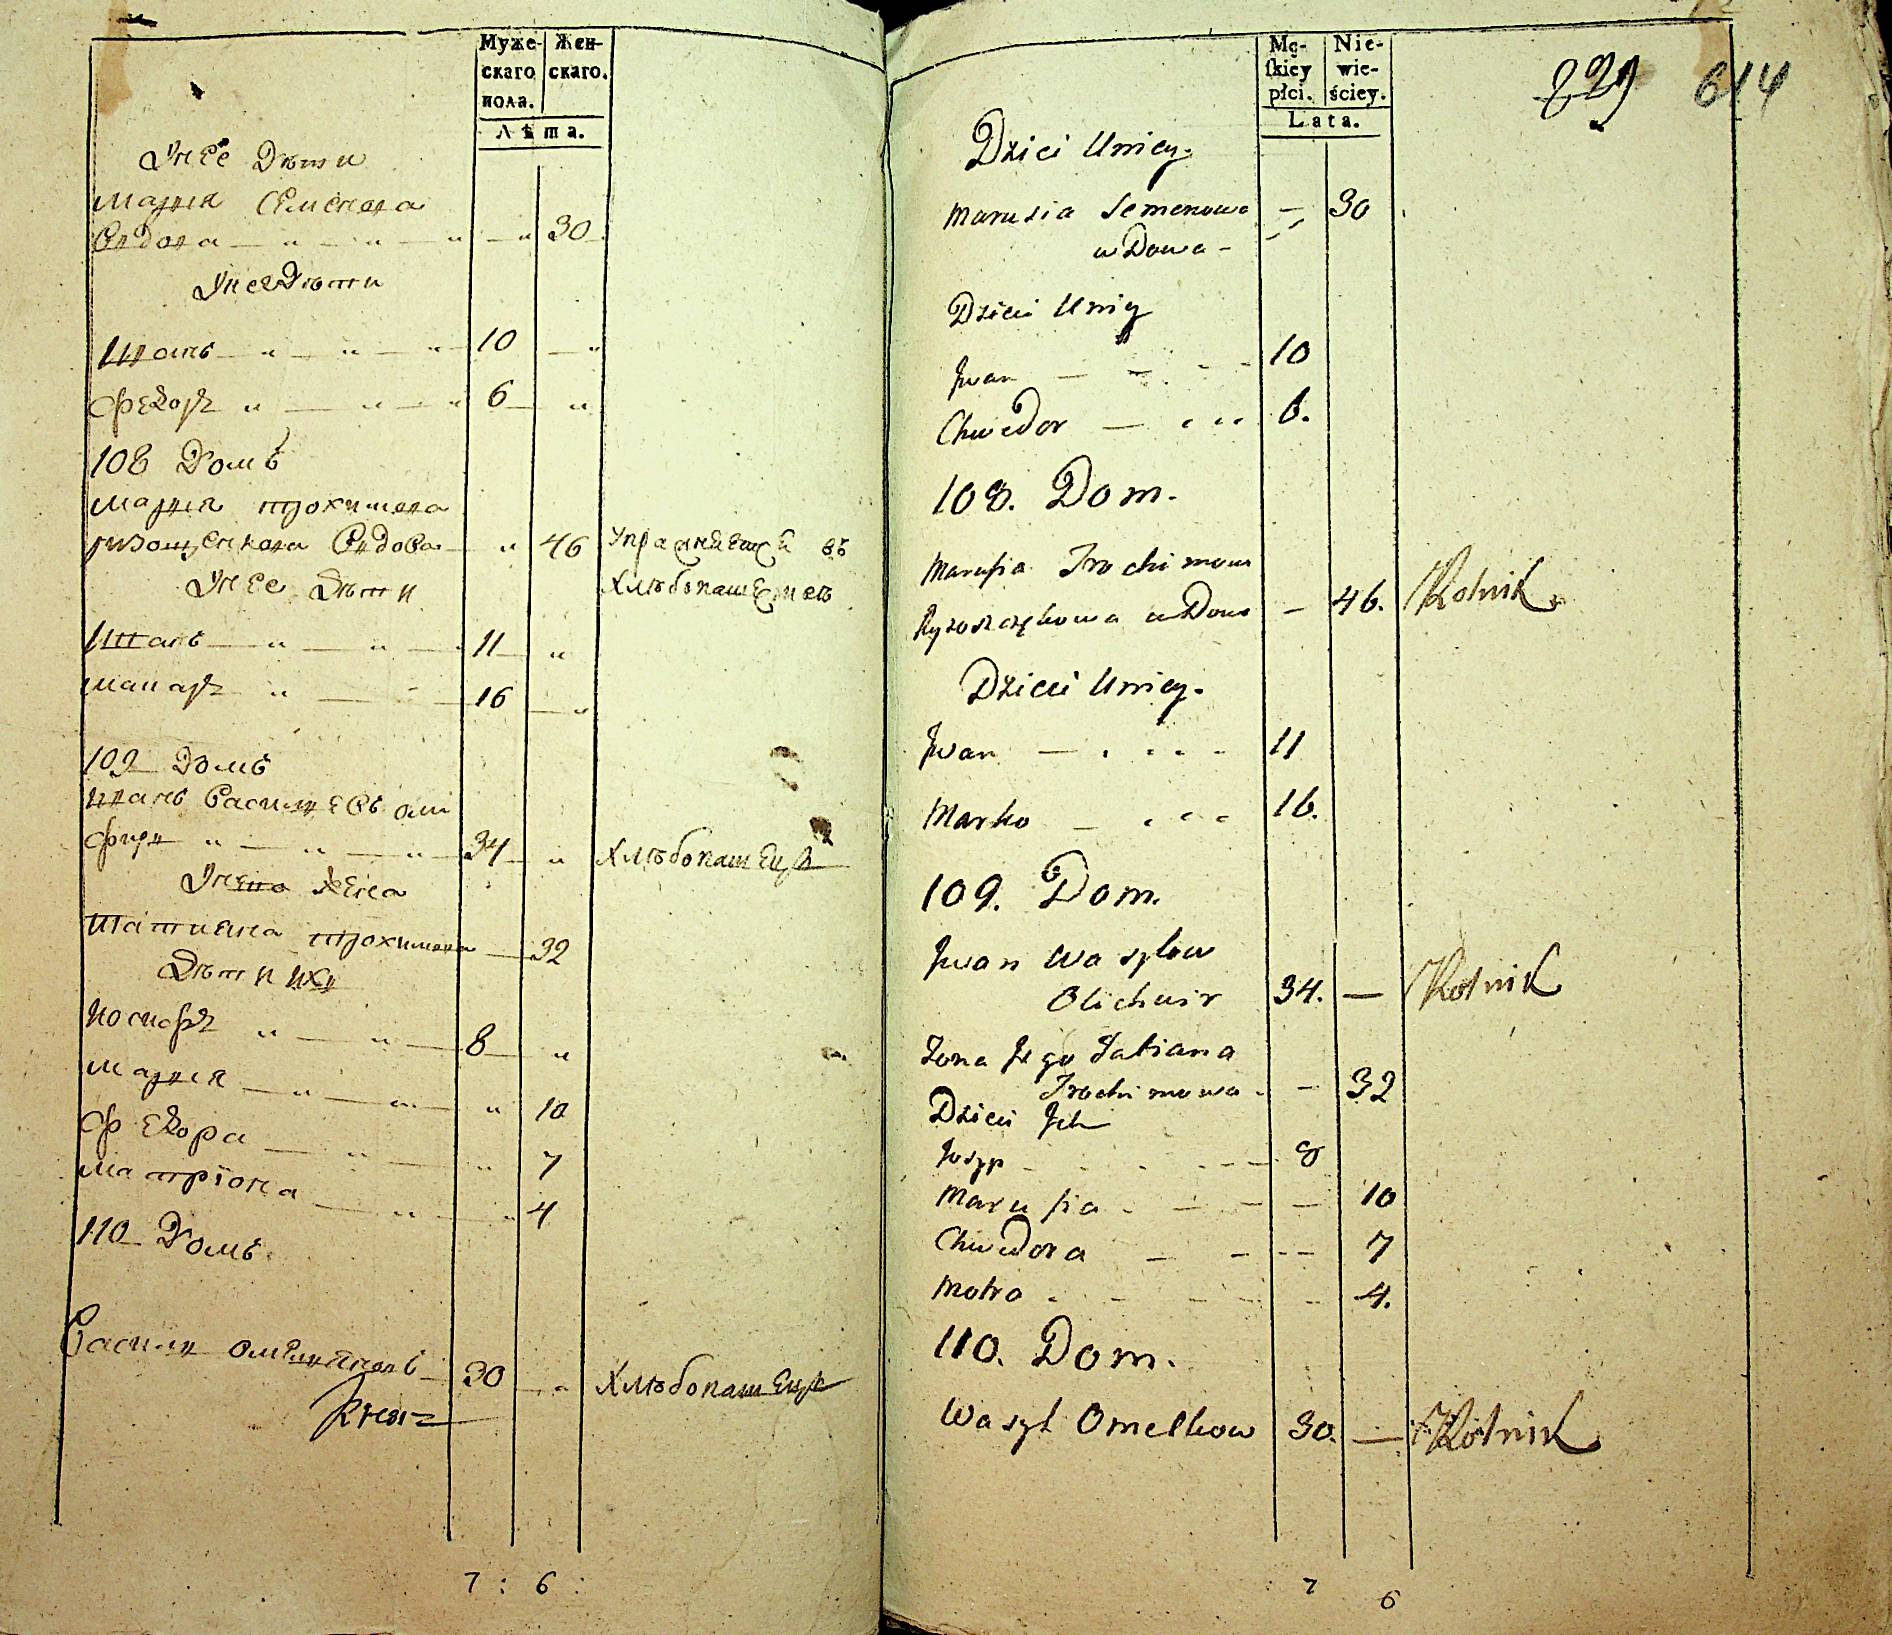 Муже- Жен-
скаго скаго.
пола.
Лѣта.
У нее Дѣти
Мария Семенова
Вдова 30
У нее Дѣти
Иванъ 10
Федоръ 6
108 Домъ
Мария Трохимова
Вдова 46 Упражняется въ
У нее Дѣти Хлѣбопашествѣ
Иванъ 11
Макаръ 16
109 Домъ
Иванъ Василіевъ Оли
фиръ 34 Хлѣбопашецъ
У него Жена
Татиена Трохимова 32
Дѣти ихъ
Иосифъ 8
Мария 10
Федора 7
Матріона 4
110 Домъ
Василий Омеляновъ 30 Хлѣбопашецъ
7 : 6 :
Mę- Nie-
skiey wie-
płci. ściey.
Lata.
229 614
Dzieci U niey.
Marusia Semenowa — 30
wDowa -
Dzieci U niey
Iwan 10
Chwedor 6.
108. Dom.
Marusia Trochimowa
Ryzoszczękowa wDowa — 46. Rolnik
Dzieci U niey.
Iwan 11
Marko 16.
109. Dom.
Iwan Wasylow
Olichwir 34. — Rolnik
Zona Jego Tatiana
Trochimowa - — 32
Dzieci Ich
Iozyp 8
Marusia 10
Chwedora 7
Motra 4.
110. Dom.
Wasyl Omelkow 30. — Rolnik
7 6